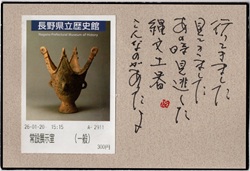 長野県立歴史館
Nagano Prefectural Museum of History
26-01-20 13:15 A-2911
常設展示室 (一般)
300円
行ってきました
見てきました
あの時見逃した
縄文土器
こんなのがあったよ